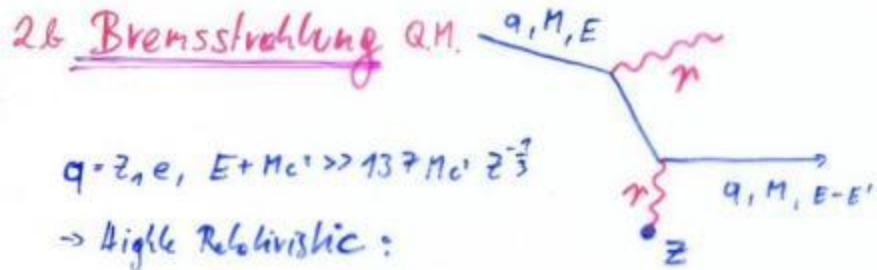 2b Bremsstrahlung Q.M.
q, M, E
γ
q = Z₁ e, E + Mc² >> 137 Mc² Z^{-1/3}
γ
q, M, E-E'
→ Highly Relativistic:
Z